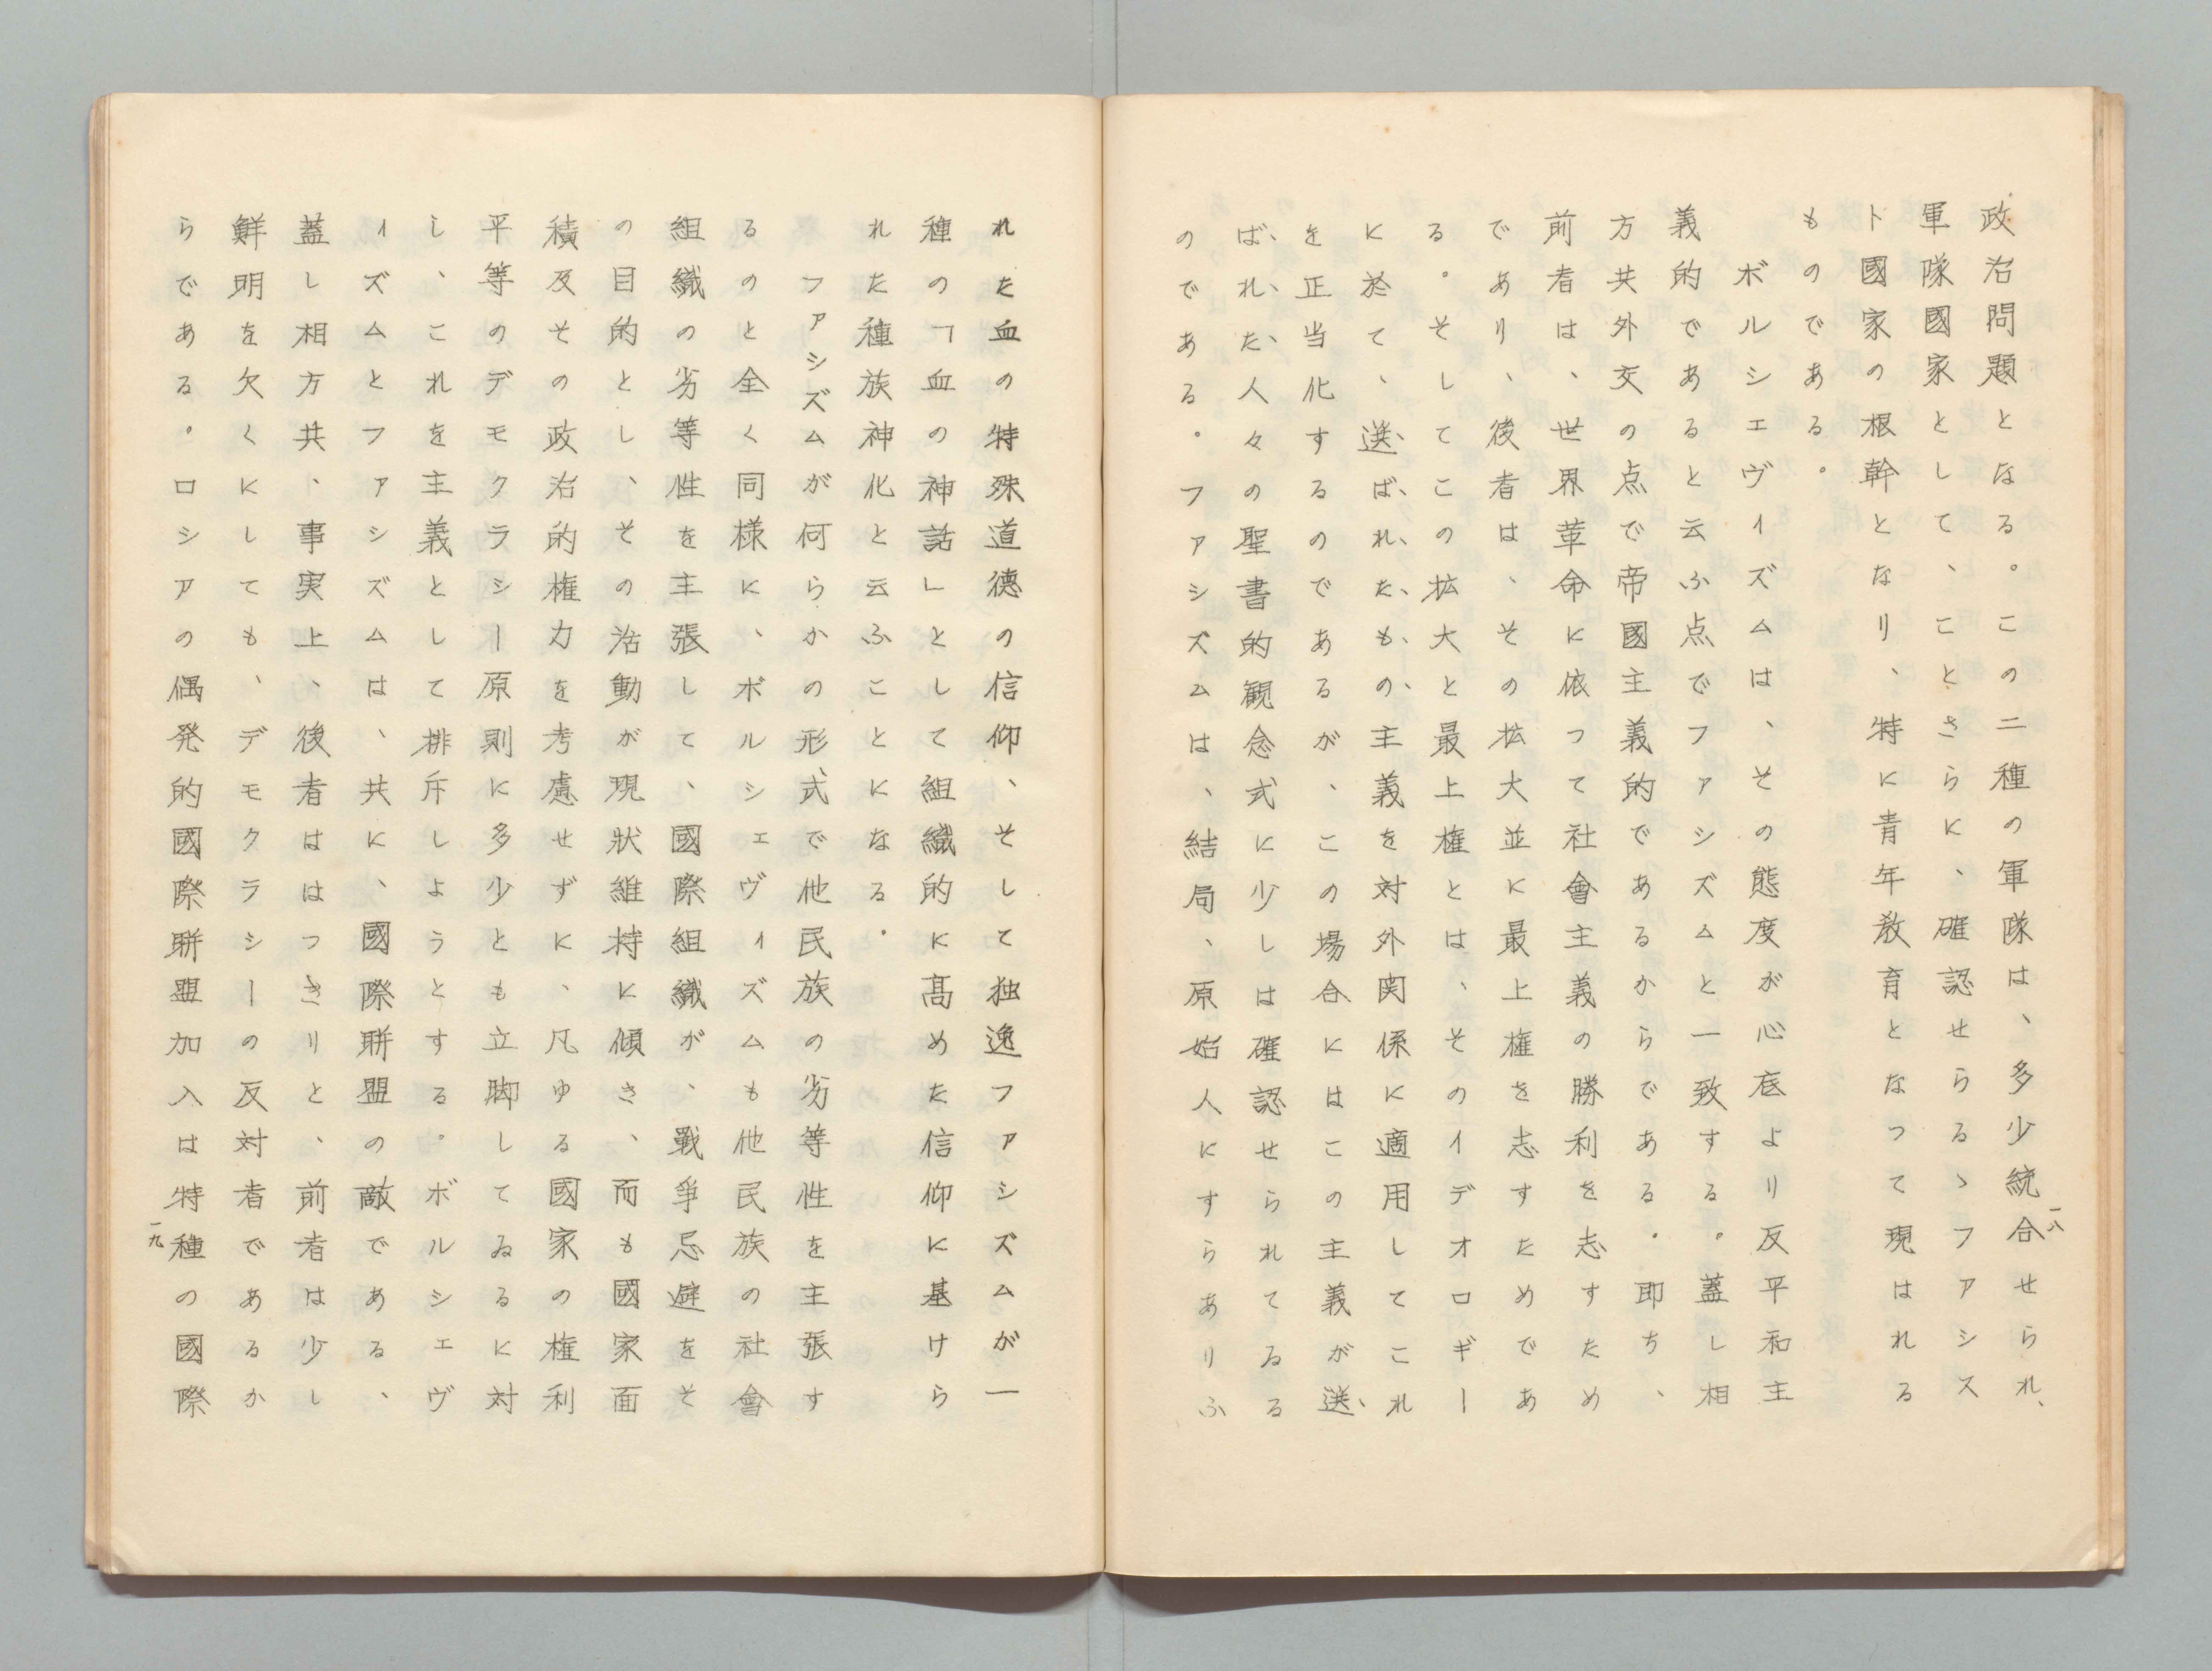 政治問題となる。この二種の軍隊は、多少統合せられ、
軍隊國家として、ことさらに、確認せらるゝファシス
ト國家の根幹となり、特に青年教育となつて現はれる
ものである。
ボルシェヴィズムは、その態度が心底より反平和主
義的であると云ふ点でファシズムと一致する。蓋し相
方共外交の点で帝國主義的であるからである。即ち、
前者は、世界革命に依つて社會主義の勝利を志すため
であり、後者は、その拡大並に最上権を志すためであ
る。そしてこの拡大と最上権とは、そのイデオロギー
に於て、選ばれたもの主義を対外関係に適用してこれ
を正当化するのであるが、この場合にはこの主義が選
ばれた人々の聖書的観念式に少しは確認せられてゐる
のである。ファシズムは、結局、原始人にすらありふ
一八
れた血の特殊道德の信仰、そして独逸ファシズムが一
種の「血の神話」として組織的に高めた信仰に基けら
れた種族神化と云ふことになる。
ファシズムが何らかの形式で他民族の劣等性を主張す
るのと全く同様に、ボルシェヴィズムも他民族の社會
組織の劣等性を主張して、國際組織が、戰爭忌避をそ
の目的とし、その活動が現狀維持に傾き、而も國家面
積及その政治的権力を考慮せずに、凡ゆる國家の権利
平等のデモクラシー原則に多少とも立脚してゐるに対
し、これを主義として排斥しようとする。ボルシェヴ
ィズムとファシズムは、共に、國際聯盟の敵である、
蓋し相方共、事実上、後者ははつきりと、前者は少し
鮮明を欠くにしても、デモクラシーの反対者であるか
らである。ロシアの偶発的國際聯盟加入は特種の國際
一九